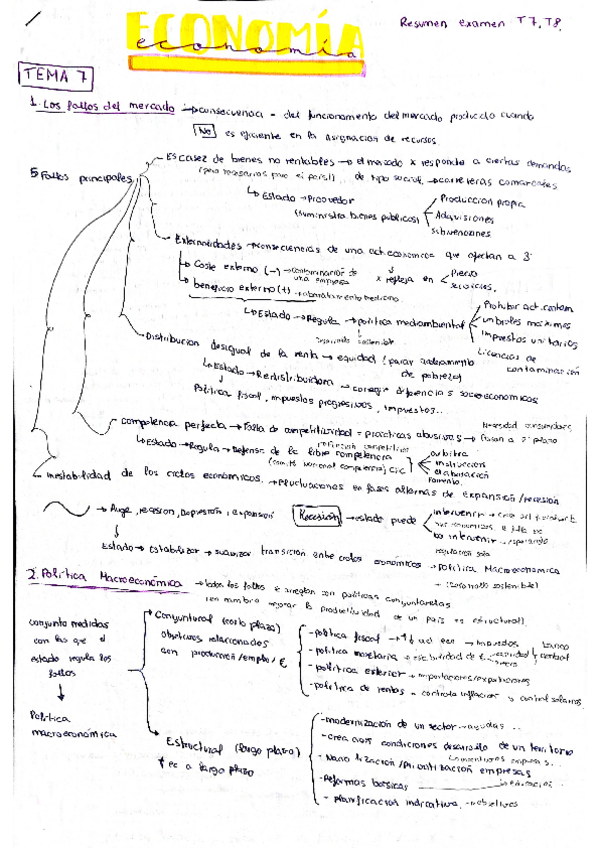 ECONOMÍA
economía
Resumen examen T7, T8.
TEMA 7
1. Los fallos del mercado → consecuencia - del funcionamento del mercado producido cuando
No es eficiente en la asignacion de recursos
5 Fallos principales
Escasez de bienes no rentables → el mercado x responde a ciertas demandas
(pero necesarios para el país!) .. de tipo social. → carreteras comarcales
↳ Estado → Proveedor
(suministra bienes públicos)
Produccion propia
Adquisiciones
Subvenciones
Externalidades → consecuencias de una act. economica que afectan a 3º
↳ Coste externo (-) → contaminación de una empresa
↳ beneficio externo (+) →
x refleja en
Precio
servicios.
↳ Estado → Regula → política medioambiental
Prohibir act. contam
umbrales máximos
Impuestos unitarios
Licencias de contaminación
Distribucion desigual de la renta → equidad
de pobreza)
↳ Estado → Redistribuidora → corregir diferencias socioeconomicas
Política fiscal, impuestos progresivos, impuestos...
competencia perfecta → Falta de competitividad = prácticas abusivas → Pasan a 2º plano
↳ Estado → Regula → Defensa de la libre competencia
(comité nacional competencia) CIC
arbitra
instrucción
elaboración
Fomento.
inestabilidad de los ciclos económicos. → Fluctuaciones en fases alternas de expansión/recesión
→ Auge, recesion, Depresión, expansión
Recesión → estado puede
intervenir →
no intervenir → esperando
regulación sola
Estado → Estabilizar → suavizar transición entre ciclos económicos → política Macroeconomica
2. Política Macroeconómica → todos los fallos se arreglan con políticas coyunturales
(sin embargo mejorar la productividad de un país es estructural)
conjunto medidas
con los que el
estado regula los
fallos
↓
Política
macroeconómica
Coyuntural (corto plazo)
objetivos relacionados
con producción/empleo/€
- política fiscal → ↑↓ act econ → impuestos
- política monetaria →
banco central
- política exterior → importaciones/exportaciones
- política de rentas → controla inflación y control salarios
Estructural (largo plazo)
↑ ec a largo plazo
- modernización de un sector → ayudas ..
- crea cion condiciones desarrollo de un territorio
- Nacionalización/privatización empresas
- Reformas básicas
→ educación..
- planificación indicativa. → objetivos